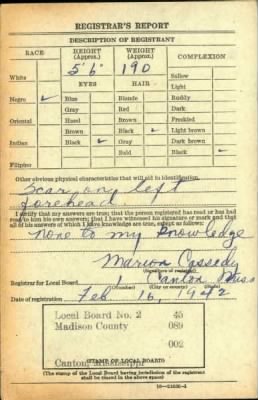 REGISTRAR'S REPORT
DESCRIPTION OF REGISTRANT
RACE HEIGHT (Approx.) WEIGHT (Approx.) COMPLEXION
5' 6" 190
Sallow
White EYES HAIR Light
Negro ✓ Blue Blonde Ruddy
Gray Red Dark
Oriental Hazel Brown Freckled
Brown Black ✓ Light brown
Indian Black ✓ Gray Dark brown
Bald Black ✓
Filipino
Other obvious physical characteristics that will aid in identification
Scar on left
forehead
I certify that my answers are true; that the person registered has read or has had
read to him his own answers; that I have witnessed his signature or mark and that
all of his answers of which I have knowledge are true, except as follows:
None to my knowledge
Marion Cassedy
(Signature of registrar)
Registrar for Local Board 1 Canton Miss
(Number) (City or county) (State)
Date of registration Feb 16, 1942
Local Board No. 2 45
Madison County 089
002
Canton, Mississippi
(STAMP OF LOCAL BOARD)
(The stamp of the Local Board having jurisdiction of the registrant
shall be placed in the above space)